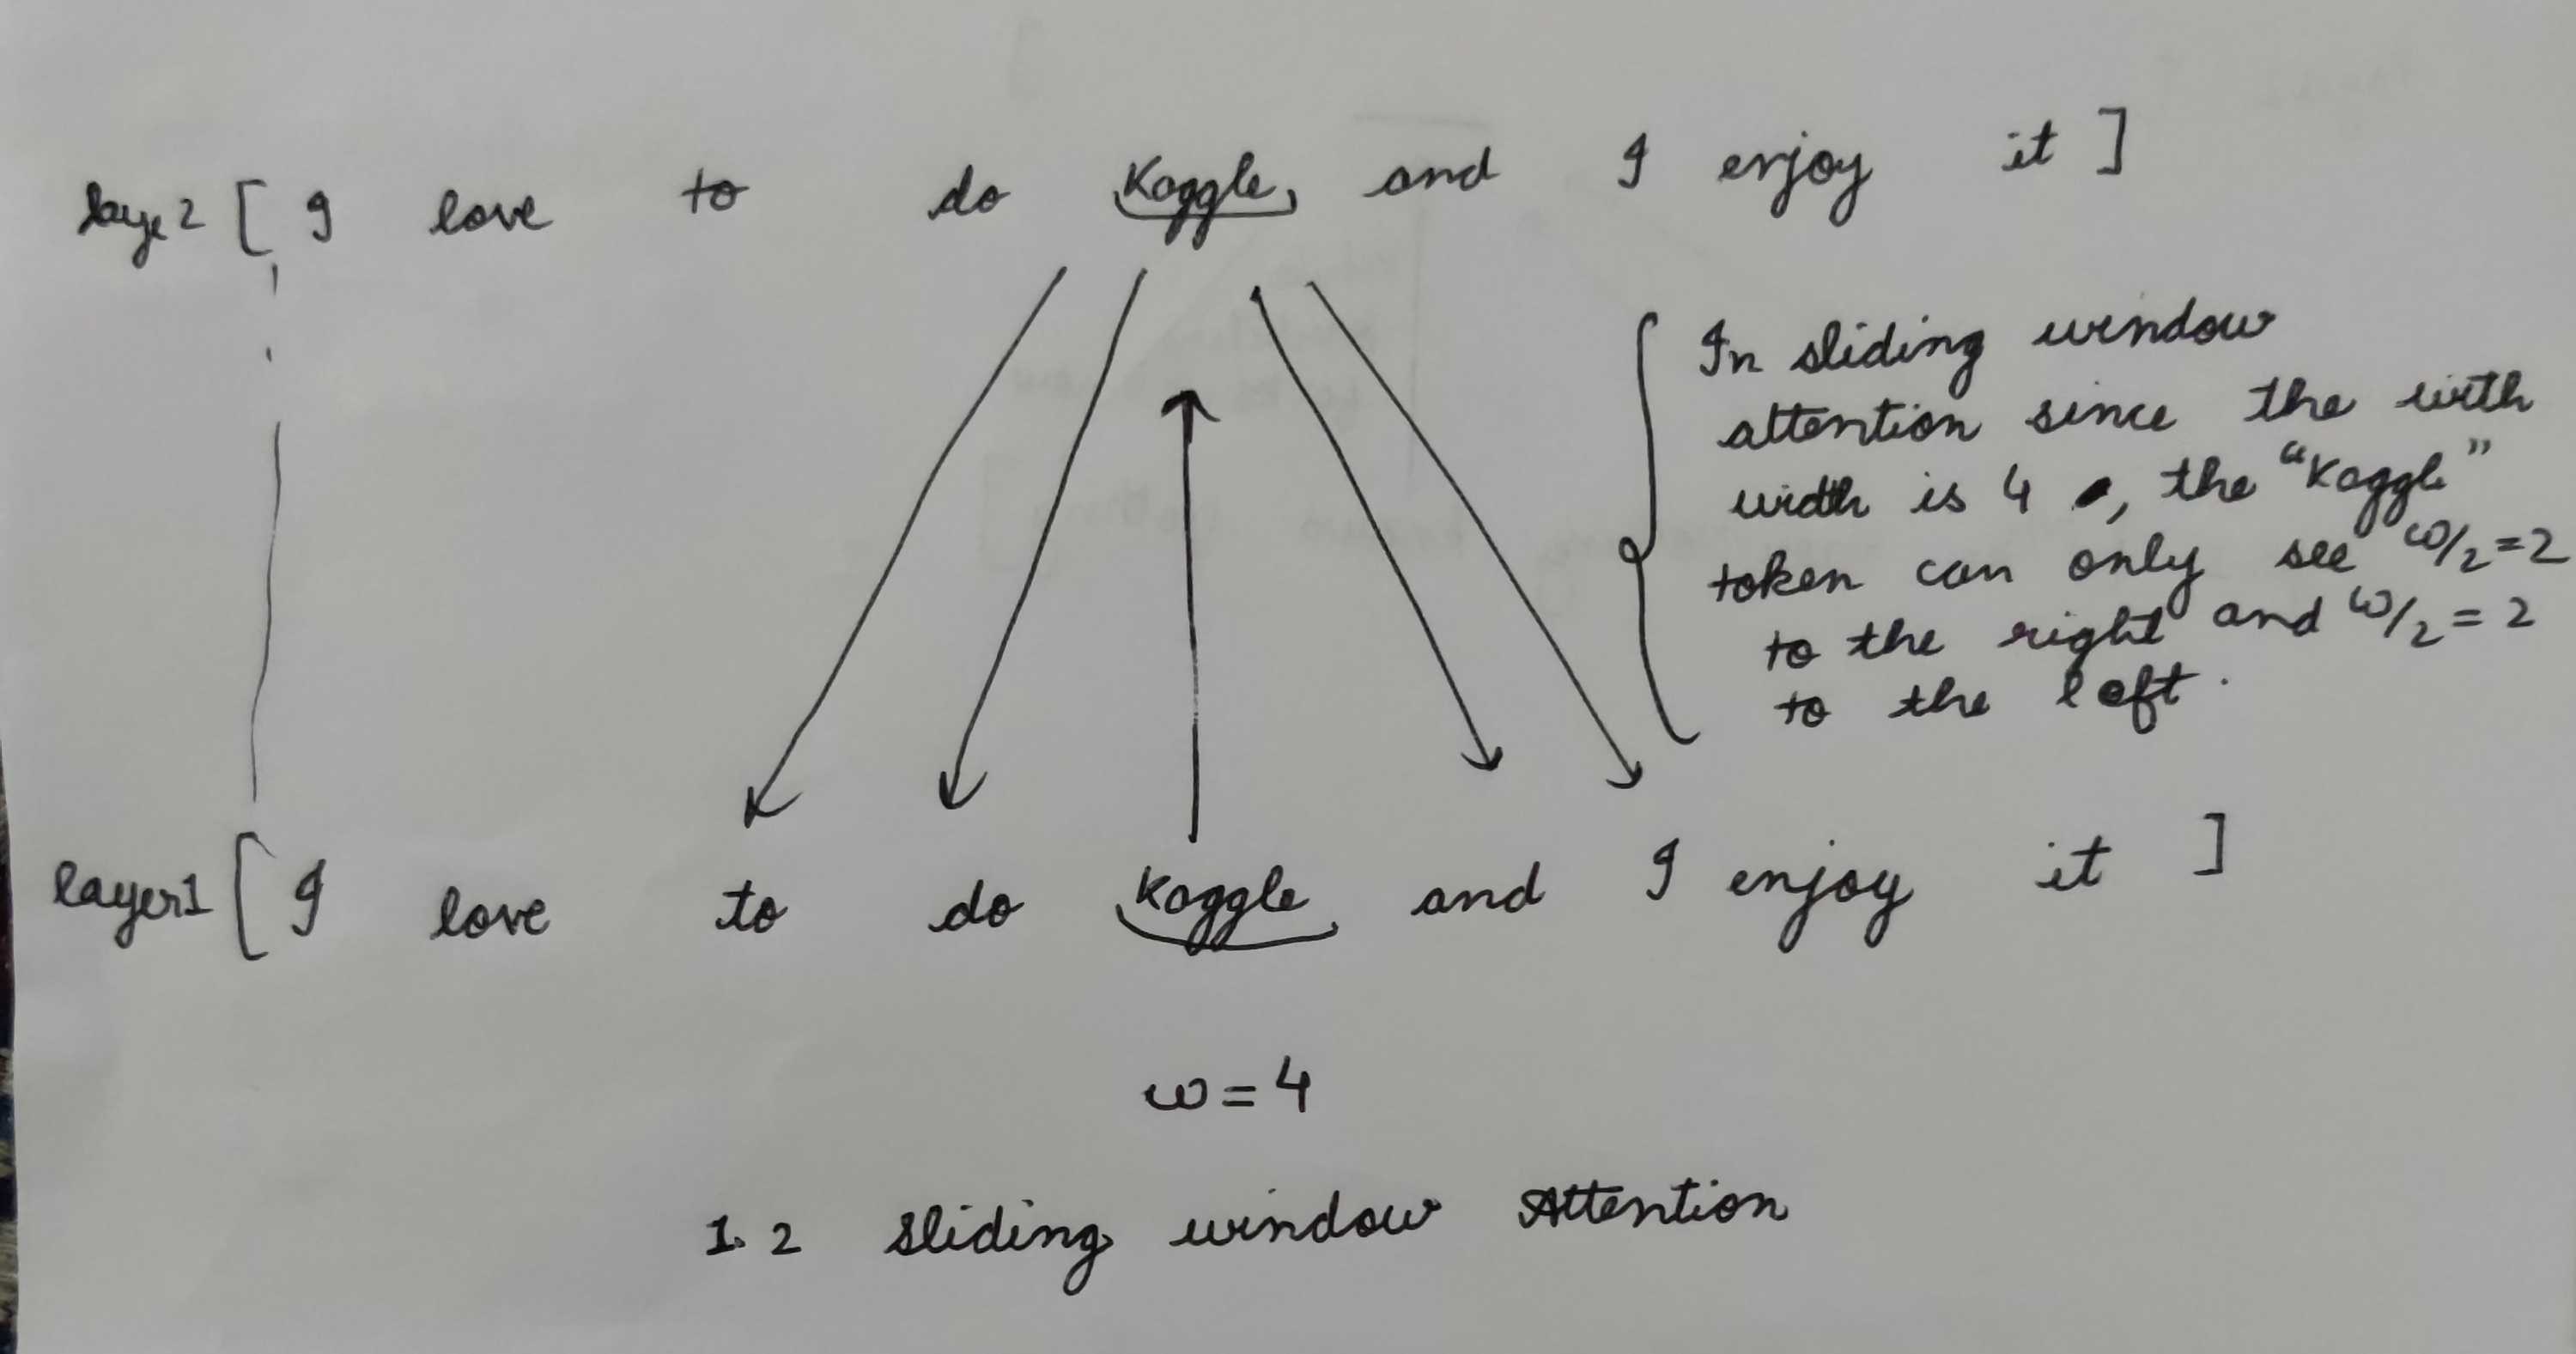 laye2 [ I love to do Kaggle and I enjoy it ]
In sliding window
attention since the with
width is 4 , the "Kaggle"
token can only see w/2=2
to the right and w/2=2
to the left.
layer1 [ I love to do Kaggle and I enjoy it ]
w=4
1.2 sliding window Attention